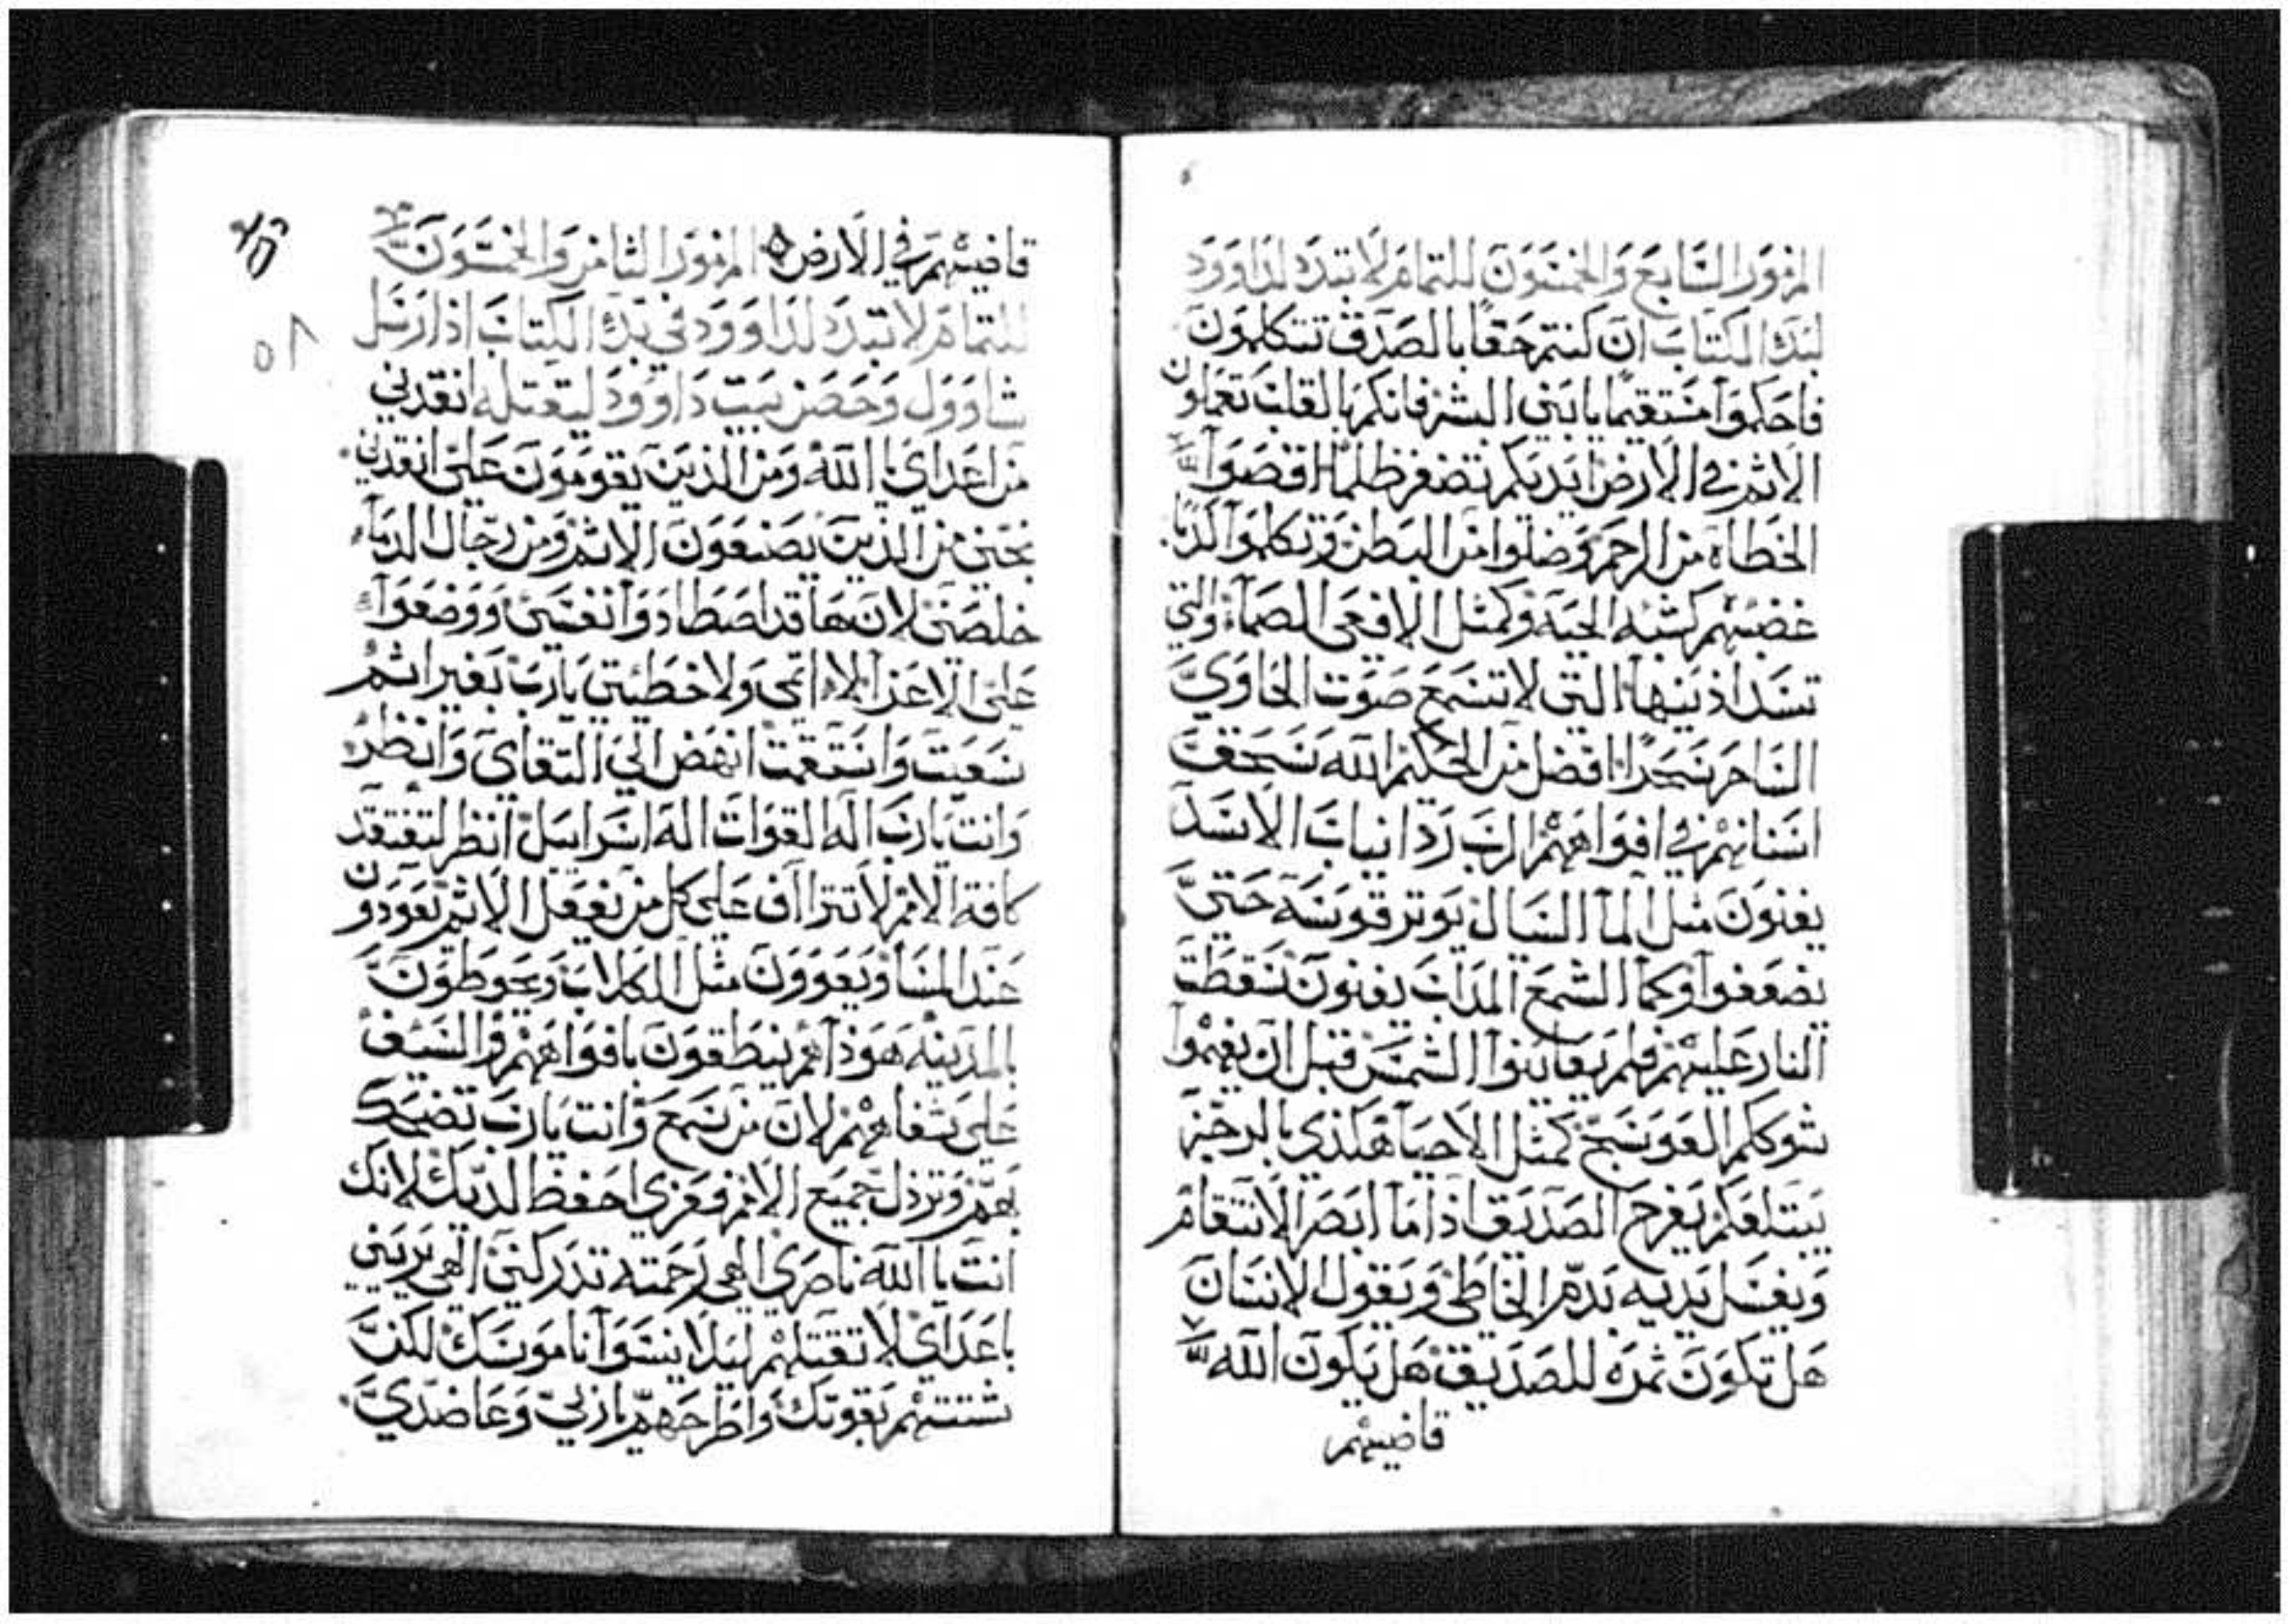 المزمور السابع والخمسون للتمام لا تبدد لداوود
لبدء الكتاب ان كنتم حقا بالصدق تتكلمون
فاحكموا مستقيما يا بني البشر فانكم بالقلب تعملون
الاثم في الارض ايديكم تضفر ظلما اقصوا
الخطاة من الرحم وضلوا من البطن وتكلموا كذبا
غضبهم كشبه الحية وكمثل الافعى الصماء والتي
تسد اذنيها التي لا تسمع صوت الحاوي
الساحر سحرا افضل من الحكيم الله سحق
اسنانهم في افواههم الرب رد انياب الاسد
يفنون مثل الما السال يوتر قوسه حتى
يضعفوا وكما الشمع المداب يفنون سقطت
النار عليهم فلم يعاينوا الشمس قبل ان يفهموا
شوككم العوسج كمثل الاحيا هكذى بالرجز
يبتلعكم يفرح الصديق اذا ما ابصر الانتقام
ويغسل يديه بدم الخاطي ويقول الانسان
هل تكون ثمره للصديق هل يكون الله
قاضيهم
قاضيهم في الارض المزمور الثامن والخمسون
للتمام لا تبدد لداوود في بدء الكتاب اذ ارسل
شاوول وحصر بيت داوود ليقتله انقدني
من اعداي يا الله ومن الذين يقومون علي انقدني
نجني من الذين يصنعون الاثم ومن رجال الدماء
خلصني لان ها قد اصطادوا نفسي ووضعوا
علي الاعزا لا اثمي ولا خطيتي يارب بغير اثم
سعيت واستقمت انهض الى التقاي وانظر
وانت يارب اله القوات اله اسراييل انظر لتفتقد
كافة الامم لا تتراف على كل من يفعل الاثم يعودون
عند المسا ويعوون مثل الكلاب ويحوطون
بالمدينه هوذا هم ينطقون بافواههم والسيف
على شفاههم لان من سمع وانت يارب تضحك
بهم وترذل جميع الامم فعزي احفظ لديك لانك
انت يا الله ناصري الهي رحمته تدركني الهي يريني
باعداي لا تقتلهم ليلا ينسوا ناموسك لكن
شتتهم بقوتك واطرحهم يا ربي وعاضدي